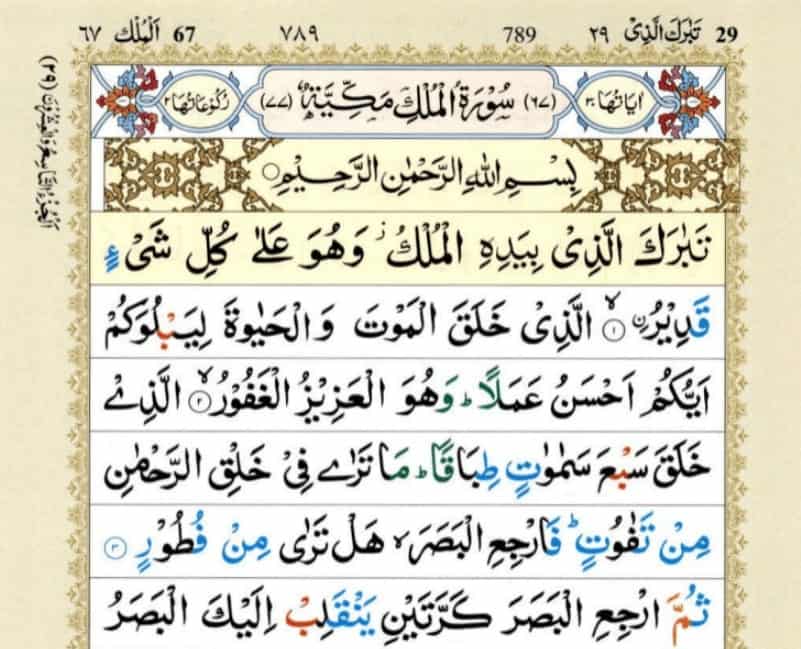 29 تَبٰرَكَ الَّذِىْ ٢٩ 789 ٧٨٩ 67 اَلْمُلْك ٦٧
اٰيَاتُهَا ٣٠ (٦٧) سُوْرَةُ الْمُلْكِ مَكِّيَّةٌ (٧٧) رُكُوْعَاتُهَا ٢
بِسْمِ اللّٰهِ الرَّحْمٰنِ الرَّحِيْمِ
تَبٰرَكَ الَّذِىْ بِيَدِهِ الْمُلْكُ ز وَهُوَ عَلٰى كُلِّ شَىْءٍ
قَدِيْرُ ۨ ۙ ١ الَّذِىْ خَلَقَ الْمَوْتَ وَالْحَيٰوةَ لِيَبْلُوَكُمْ
اَيُّكُمْ اَحْسَنُ عَمَلًا ؕ وَهُوَ الْعَزِيْزُ الْغَفُوْرُ ۙ ٢ الَّذِىْ
خَلَقَ سَبْعَ سَمٰوٰتٍ طِبَاقًا ؕ مَا تَرٰى فِىْ خَلْقِ الرَّحْمٰنِ
مِنْ تَفٰوُتٍ ؕ فَارْجِعِ الْبَصَرَ ۙ هَلْ تَرٰى مِنْ فُطُوْرٍ ٣
ثُمَّ ارْجِعِ الْبَصَرَ كَرَّتَيْنِ يَنْقَلِبْ اِلَيْكَ الْبَصَرُ
اَلْجُزْءُ التَّاسِعُ وَالْعِشْرُوْنَ (٢٩)